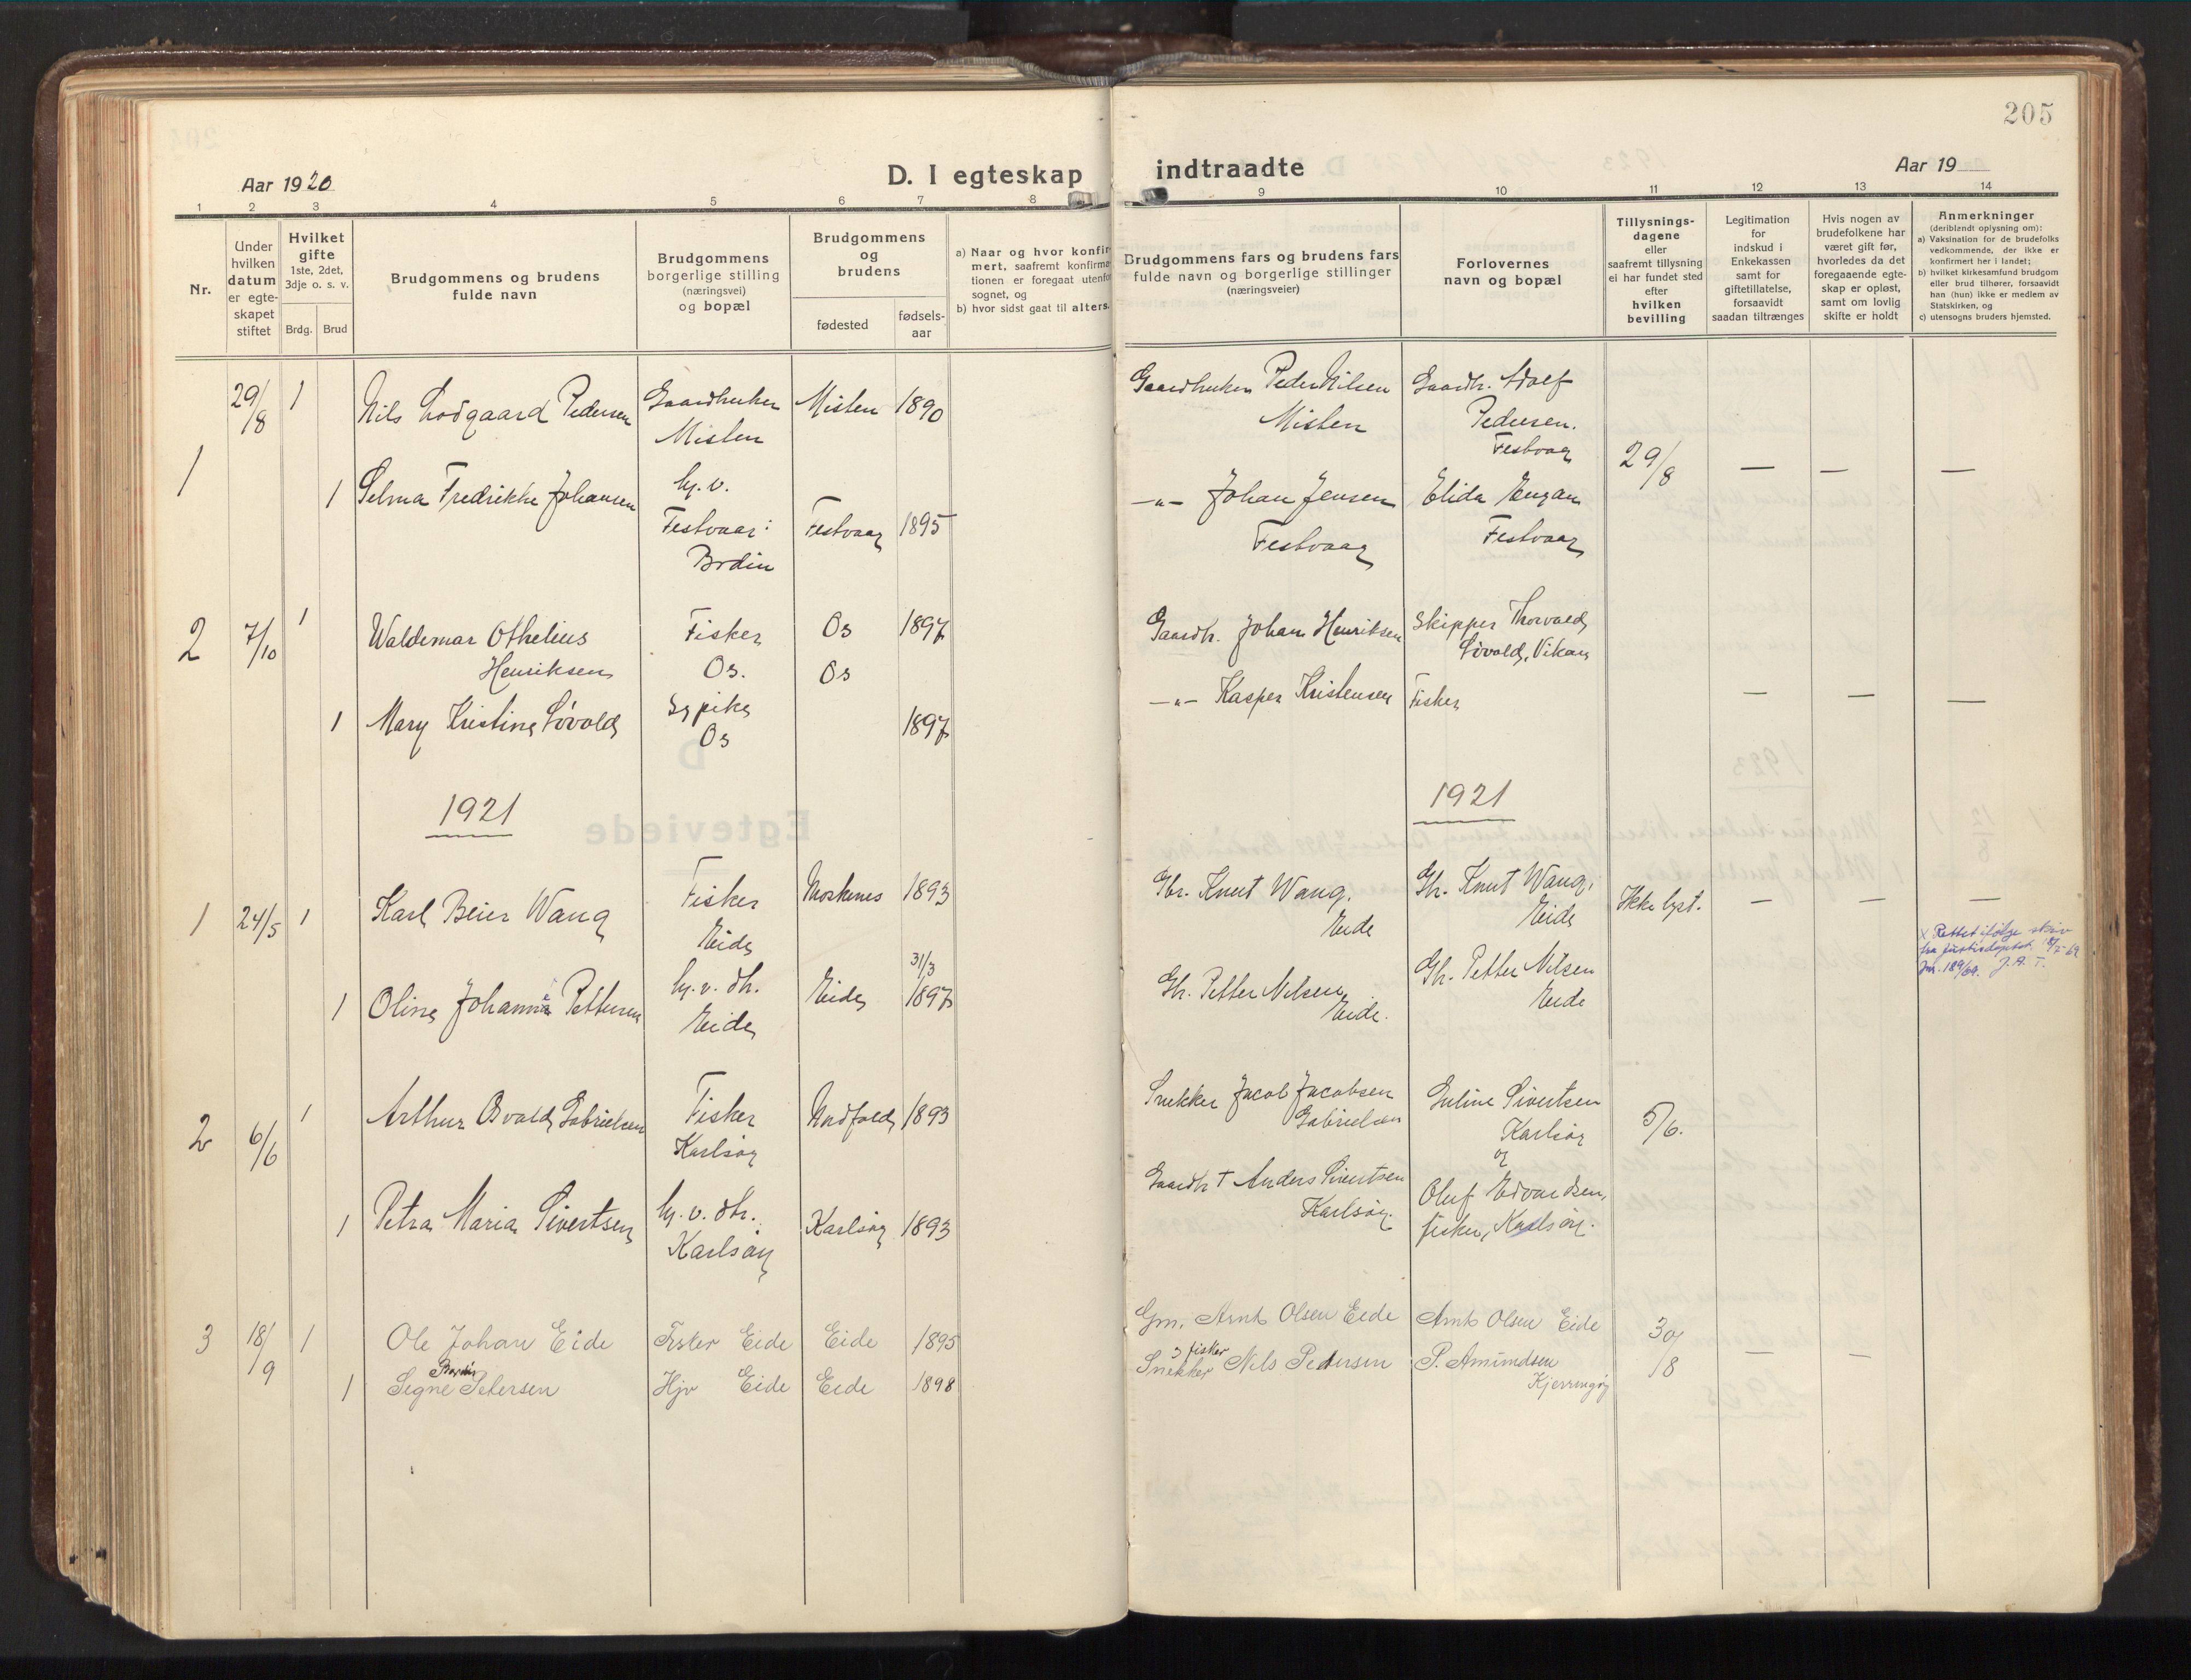 205
Aar 1920
D. I egteskap indtraadte
Aar 19
1 2 3 4 5 6 7 8 9 10 11 12 13 14
Nr.
Under
hvilken
datum
er egte-
skapet
stiftet
Hvilket
gifte
1ste, 2det,
3dje o. s. v.
Brdg. Brud
Brudgommens og brudens
fulde navn
Brudgommens
borgerlige stilling
(næringsvei)
og bopæl
Brudgommens
og
brudens
fødested
fødsels-
aar
a) Naar og hvor konfir-
mert, saafremt konfirma
tionen er foregaat utenfo
sognet, og
b) hvor sidst gaat til alters.
Brudgommens fars og brudens fars
fulde navn og borgerlige stillinger
(næringsveier)
Forlovernes
navn og bopæl
Tillysnings-
dagene
eller
saafremt tillysning
ei har fundet sted
efter
hvilken
bevilling
Legitimation
for
indskud i
Enkekassen
samt for
giftetillatelse,
forsaavidt
saadan tiltrænges
Hvis nogen av
brudefolkene har
været gift før,
hvorledes da det
foregaaende egte-
skap er opløst,
samt om lovlig
skifte er holdt
Anmerkninger
(deriblendt oplysning om):
a) Vaksination for de brudefolks
vedkommende, der ikke er
konfirmert her i landet;
b) hvilket kirkesamfund brudgom
eller brud tilhører, forsaavidt
han (hun) ikke er medlem av
Statskirken, og
c) utensogns bruders hjemsted.
1 29/8 1 Nils Lodgaard Pedersen Gaardbruker Misten Misten 1890 Gaardbruker Peder Nilsen Misten Gaardb. Adolf Pedersen. Festvaag 29/8 — — —
1 Selma Fredrikke Johansen hj. v. Festvaag: Bodin Festvaag 1895 —"— Johan Jensen Festvaag Elida Engan Festvaag
2 7/10 1 Waldemar Othelius Henriksen Fisker Os. Os 1897 Gaardb. Johan Henriksen Skipper Thorvald Løvold, Vikan
Os
1 Mary Kristine Løvold Sypike Os 1897 —"— Kasper Kristensen Fisker — — —
1921 1921
1 24/5 1 Karl Beier Wang Fisker Eide Moskenes 1893 Gbr. Knut Wang. Eide Gb. Knut Wang, Eide Ikke lyst. — — —
x Rettet ifølge skriv
fra justisdeptet.
Jnr. 189/69. J.A.T.
1 Oline Johanna Pettersen hj. v. dtr. Eide Eide 31/3 1897 Gb. Petter Nilsen Eide. Gb. Petter Nilsen Eide
2 6/6 1 Arthur Osvald Gabrielsen Fisker Karlsøy Nordfold 1893 Snekker Jacob Jacobsen Gabrielsen Guline Sivertsen Karlsøy og 5/6.
1 Petra Maria Sivertsen hj. v. dtr. Karlsøy Karlsøy 1893 Gaardb † Anders Sivertsen Karlsøy. Oluf Edvardsen, fisker, Karlsøy.
3 18/9 1 Ole Johan Eide Fisker Eide Eide 1895 Gm. Arnt Olsen Eide Arnt Olsen Eide 30/8 — —
1 Segne Petersen Hjv Eide Eide 1898 Snekker & fisker Nils Pedersen P. Amundsen Kjerringøy